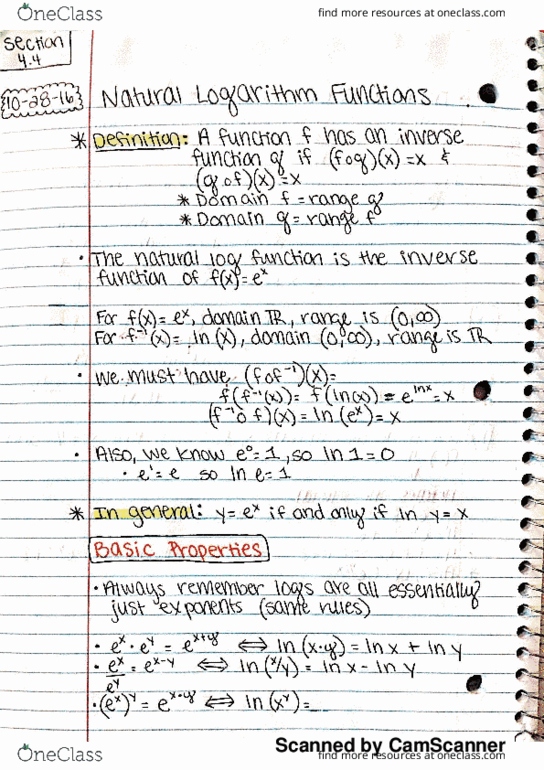 OneClass
find more resources at oneclass.com
Section
4.4
10-28-16
Natural Logarithm Functions
* Definition: A function f has an inverse
function g if (fog)(x)=x &
(gof)(x)=x
* Domain f = range g
* Domain g = range f
• The natural log function is the inverse
function of f(x)=eˣ
For f(x)= eˣ, domain ℝ, range is (0,∞)
For f⁻¹(x)= ln(x), domain (0,∞), range is ℝ
• We must have (fof⁻¹)(x)=
f(f⁻¹(x))= f(ln(x)) = e^lnx = x
(f⁻¹of)(x)= ln(eˣ)=x
• Also, we know e⁰=1, so ln 1=0
• e¹=e so ln e=1
* In general: y=eˣ if and only if ln y=x
Basic Properties
• Always remember logs are all essentially
just exponents (same rules)
• eˣ·eʸ = eˣ⁺ʸ ⇔ ln(x·y)=ln x + ln y
• eˣ/eʸ = eˣ⁻ʸ ⇔ ln(x/y)= ln x - ln y
• (eˣ)ʸ = eˣ·ʸ ⇔ ln(xʸ)=
Scanned by CamScanner
OneClass
find more resources at oneclass.com